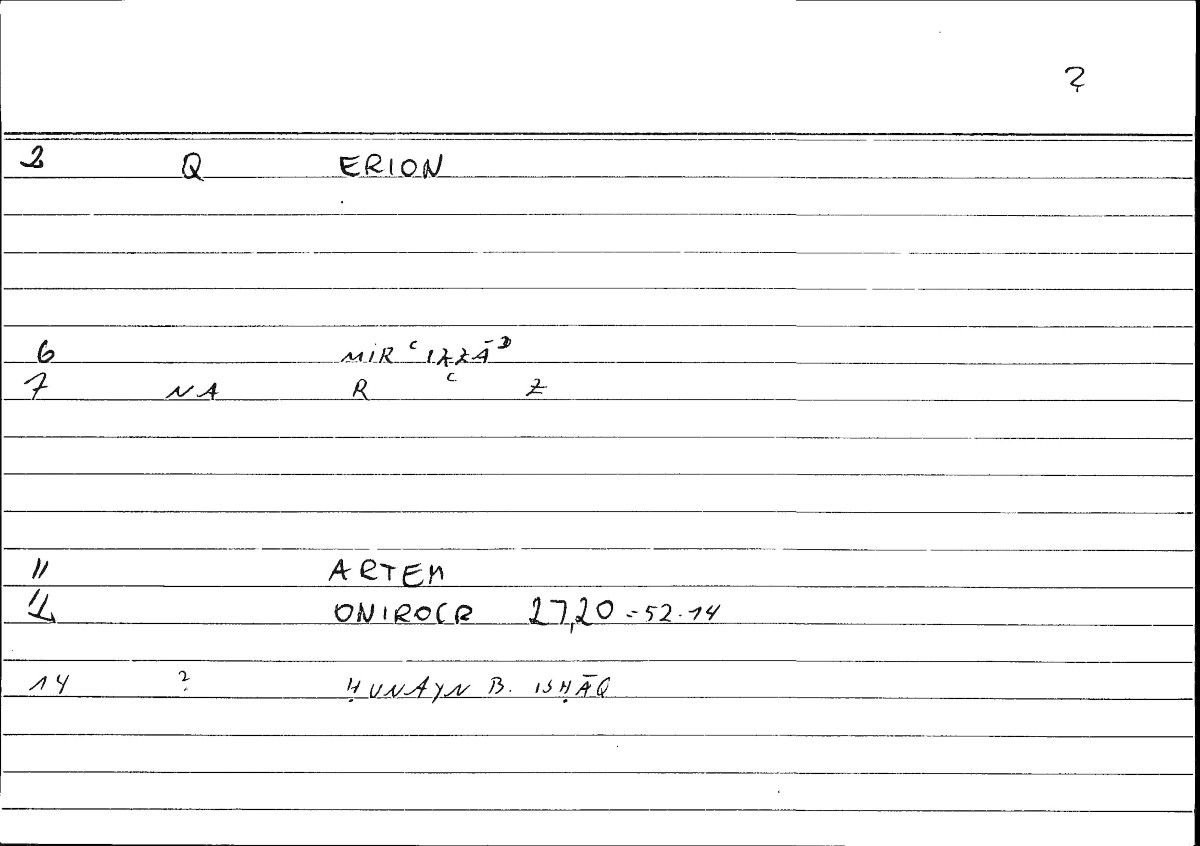 ?
2 Q ERION
6 MIR ʿIZZĀD
7 NA R ʿ Z
11 ARTEM
ONIROCR 27,20 = 52.14
14 ? ḤUNAYN B. ISḤĀQ